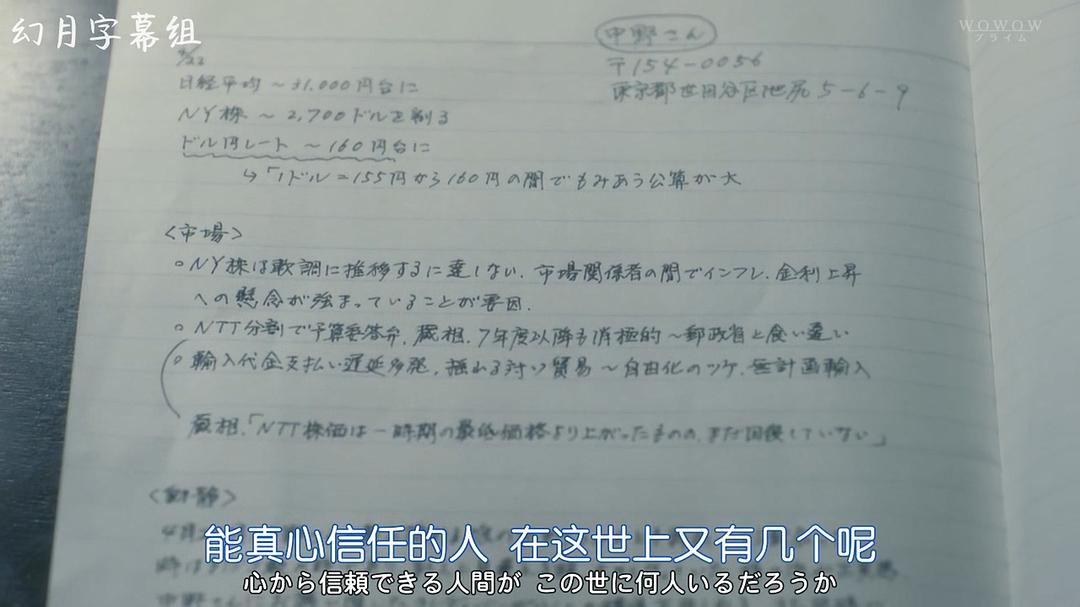 幻月字幕組
WOWOW
プライム
中野さん
〒154-0056
東京都世田谷区池尻5-6-9
日経平均〜31,000円台に
NY株〜2,700ドルを割る
ドル円レート〜160円台に
↳「1ドル=155円から160円の間でもみあう公算が大
<市場>
○NY株は軟調に推移するに違しない、市場関係者の間でインフレ、金利上昇
への懸念が強まっていることが要因.
○NTT分割で予算委答弁、蔵相、7年度以降も消極的〜郵政省と食い違い
○輸入代金支払い遅延多発、揺れる対ソ貿易〜自由化のツケ、無計画輸入
蔵相、「NTT株価は一時期の最低価格より上がったものの、まだ回復していない」
<動静>
4月
時は
中野さん
能真心信任的人 在这世上又有几个呢
心から信頼できる人間が この世に何人いるだろうか